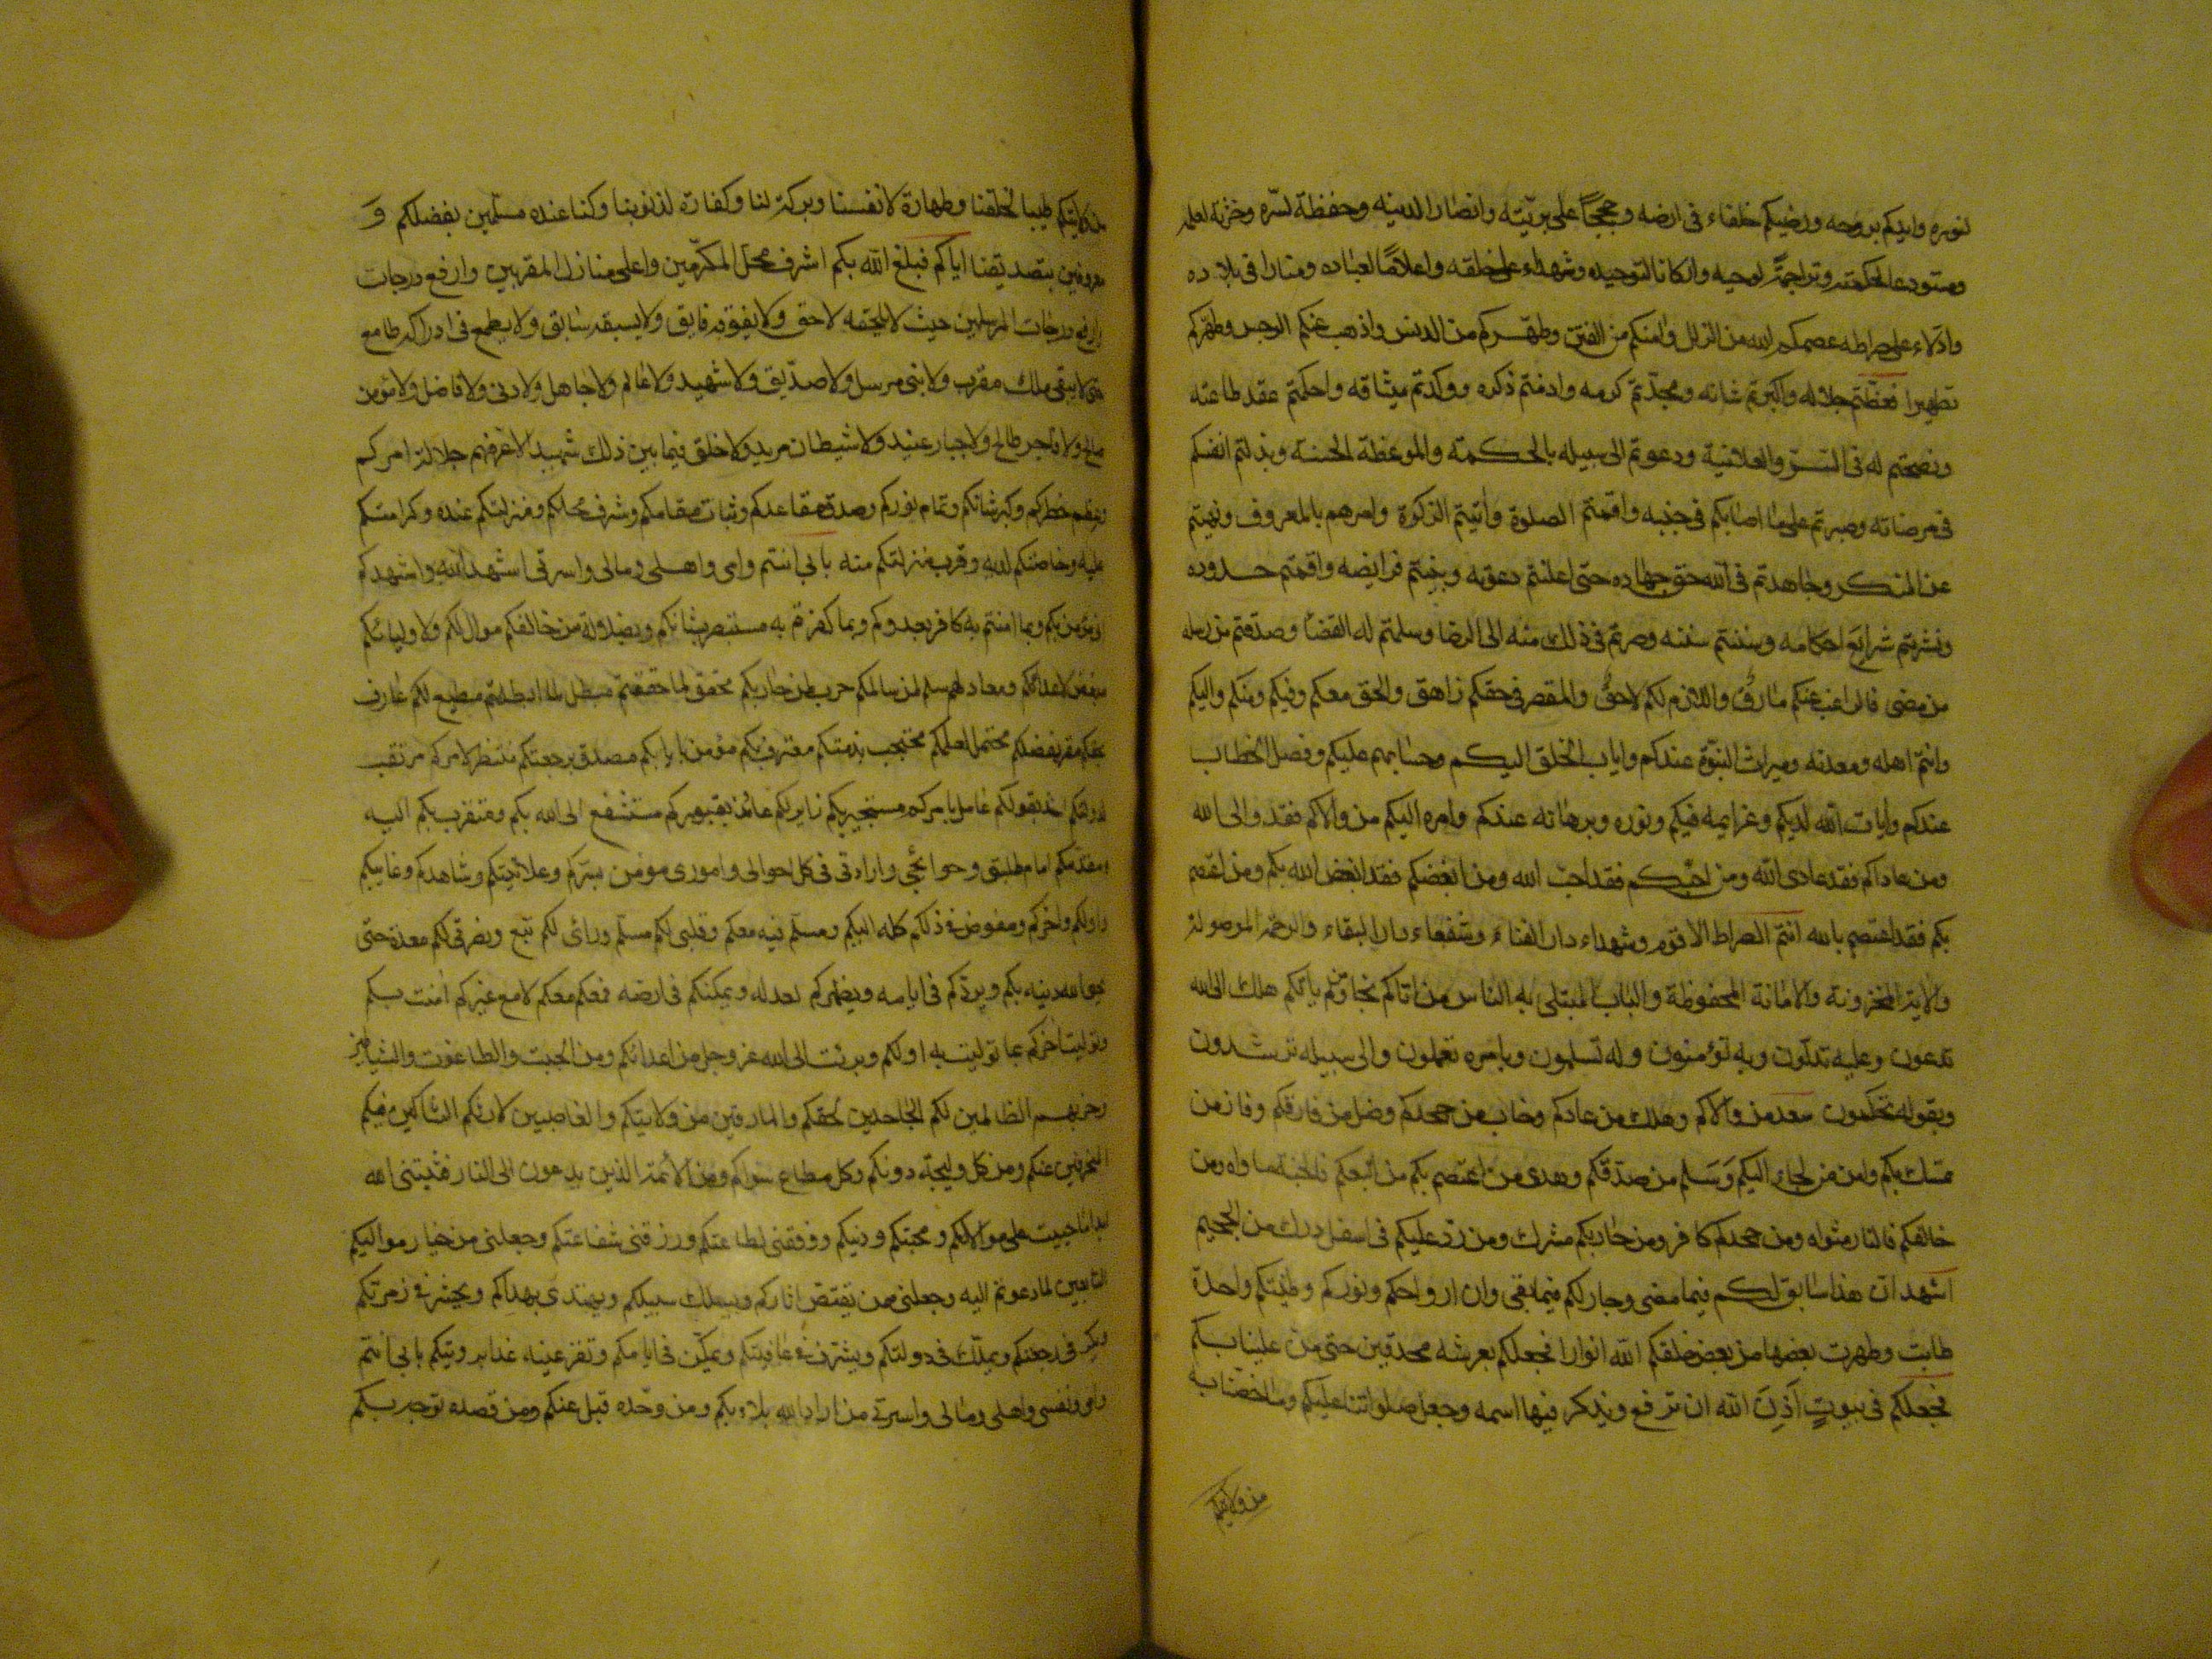 لنوره وايدكم بروحه ورضيكم خلفاء فى ارضه وحججًا على بريّته وانصارا لدينه وحفظة لسرّه وخزنة لعلمه
ومستودعا لحكمته وتراجمة لوحيه واركانا لتوحيده وشهداء على خلقه واعلامًا لعباده ومنارا فى بلاده
وادلاء على صراطه عصمكم الله من الزلل وامنكم من الفتن وطهركم من الدنس واذهب عنكم الرجس وطهركم
تطهيرا فعظّمتم جلاله واكبرتم شانه ومجدّتم كرمه وادمتم ذكره ووكدتم ميثاقه واحكمتم عقد طاعته
ونصحتم له فى السّر والعلانية ودعوتم الى سبيله بالحكمة والموعظة الحسنة وبذلتم انفسكم
فى مرضاته وصبرتم على ما اصابكم فى جنبه واقمتم الصلوة واتيتم الزكوة وامرهم بالمعروف ونهيتم
عن المنكر وجاهدتم فى الله حق جهاده حتى اعلنتم دعوته وبينتم فرايضه واقمتم حدوده
ونشرتم شرايع احكامه وسننتم سننه وصرتم فى ذلك منه الى الرضا وسلمتم له القضا وصدقتم من رسله
من مضى فالراغب عنكم مارق واللازم لكم لاحق والمقصر فى حقكم زاهق والحق معكم وفيكم ومنكم واليكم
وانتم اهله ومعدنه وميراث النبوّة عندكم واياب الخلق اليكم وحسابهم عليكم وفصل الخطاب
عندكم وايات الله لديكم وعزايمه فيكم ونوره وبرهانه عندكم وامره اليكم من والاكم فقد والى الله
ومن عاداكم فقد عادى الله ومن احبّكم فقد احب الله ومن ابغضكم فقد ابغض الله بكم ومن اعتصم
بكم فقد اعتصم بالله انتم الصراط الاقوم وشهداء دار الفناء وشفعاء دار البقاء والرحمة الموصولة
والاية المخزونة والامانة المحفوظة والباب المبتلى به الناس من اتاكم نجا ومن لم ياتكم هلك الى الله
تدعون وعليه تدلون وبه تؤمنون وله تسلمون وبامره تعملون والى سبيله ترشدون
وبقوله تحكمون سعد من والاكم وهلك من عاداكم وخاب من جحدكم وضل من فارقكم وفاز من
تمسّك بكم وامن من لجاء اليكم وَسَلم من صدّقكم وهدى من اعتصم بكم من اتبعكم فالجنة ماواه ومن
خالفكم فالنار مثواه ومن جحدكم كافر ومن حاربكم مشرك ومن ردّ عليكم فى اسفل درك من الجحيم
اشهد ان هذا سابق لكم فيما مضى وجار لكم فيما بقى وان ارواحكم ونوركم وطينتكم واحدة
طابت وطهرت بعضها من بعض خلقكم الله انوارا فجعلكم بعرشه محدقين حتى منّ علينا بكم
فجعلكم فى بيوتٍ اَذِنَ الله ان ترفع ويذكر فيها اسمه وجعل صلواتنا عليكم وما خصّنا به
من ولايتكم
من ولايتكم طيبا لخلقنا وطهارة لانفسنا وبركة لنا وكفارة لذنوبنا وكنا عنده مسلّمين بفضلكم وَ
معروفين بتصديقنا اياكم فبلغ الله بكم اشرف محلّ المكرّمين واعلى منازل المقربين وارفع درجات
وارفع درجات المرسلين حيث لا يلحقه لاحق ولا يفوقه فايق ولا يسبقه سابق ولا يطمع فى ادراكه طامع
حتى لا يبقى ملك مقرب ولا نبى مرسل ولا صدّيق ولا شهيد ولا عالم ولا جاهل ولا دنى ولا فاضل ولا مؤمن
صالح ولا فاجر طالح ولا جبار عنيد ولا شيطان مريد ولا خلق فيما بين ذلك شهيد الا عرفهم جلالة امركم
وعظم خطركم وكبر شانكم وتمام نوركم وصدق مقاعدكم وثبات مقامكم وشرف محلكم ومنزلتكم عنده وكرامتكم
عليه وخاصتكم لديه وقرب منزلتكم منه بابى انتم وامى واهلى ومالى واسرتى اشهد الله واشهدكم
انى مؤمن بكم وبما امنتم به كافر بعدوكم وبما كفرتم به مستبصر بشانكم وبضلالة من خالفكم موال لكم ولاوليائكم
مبغض لاعدائكم ومعاد لهم سلم لمن سالمكم حرب لمن حاربكم محقق لما حققتم مبطل لما ابطلتم مطيع لكم عارف
بحقكم مقر بفضلكم محتمل لعلمكم محتجب بذمتكم معترف بكم مؤمن بايابكم مصدق برجعتكم منتظر لامركم مرتقب
لدولتكم اخذ بقولكم عامل بامركم مستجير بكم زاير لكم عائذ بقبوركم مستشفع الى الله بكم ومتقرب بكم اليه
ومقدّمكم امام طلبتى وحوائجى وارادتى فى كل احوالى وامورى مومن بسرّكم وعلانيتكم وشاهدكم وغايبكم
واولكم واخركم ومفوض فى ذلكم كله اليكم ومسلّم فيه معكم وقلبى لكم مسلّم ورائى لكم تبع ونصرتى لكم معدة حتى
يحيى الله دينه بكم ويردّكم فى ايامه ويظهركم لعدله ويمكنكم فى ارضه فمعكم معكم لا مع غيركم امنت بكم
وتوليت اخركم بما توليت به اولكم وبرئت الى الله عز وجل من اعدائكم ومن الجبت والطاغوت والشياطين
وحزبهم الظالمين لكم الجاحدين لحقكم والمارقين من ولايتكم والغاصبين لارثكم الشاكين فيكم
المنحرفين عنكم ومن كل وليجة دونكم وكل مطاع سواكم ومن الائمة الذين يدعون الى النار فثبتنى الله
ابدا ما حييت على موالاتكم ومحبتكم ودينكم ووفقنى لطاعتكم ورزقنى شفاعتكم وجعلنى من خيار مواليكم
التابعين لما دعوتم اليه وجعلنى ممن يقتص اثاركم ويسلك سبيلكم ويهتدى بهداكم ويحشر فى زمرتكم
ويكر فى رجعتكم ويملّك فى دولتكم ويشرف فى عافيتكم ويمكّن فى ايامكم وتقر عينه غدا برويتكم بابى انتم
وامى ونفسى واهلى ومالى واسرتى من اراد الله بداء بكم ومن وحّده قبل عنكم ومن قصده توجه بكم